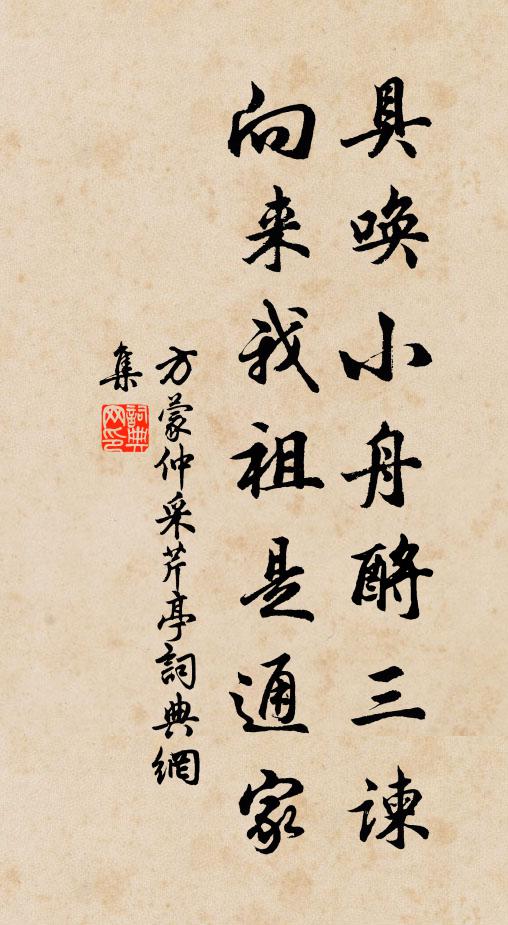 具唤小舟酹三谏
向来我祖是通家
方蒙仲采芹亭詞典網
集
詞典网印